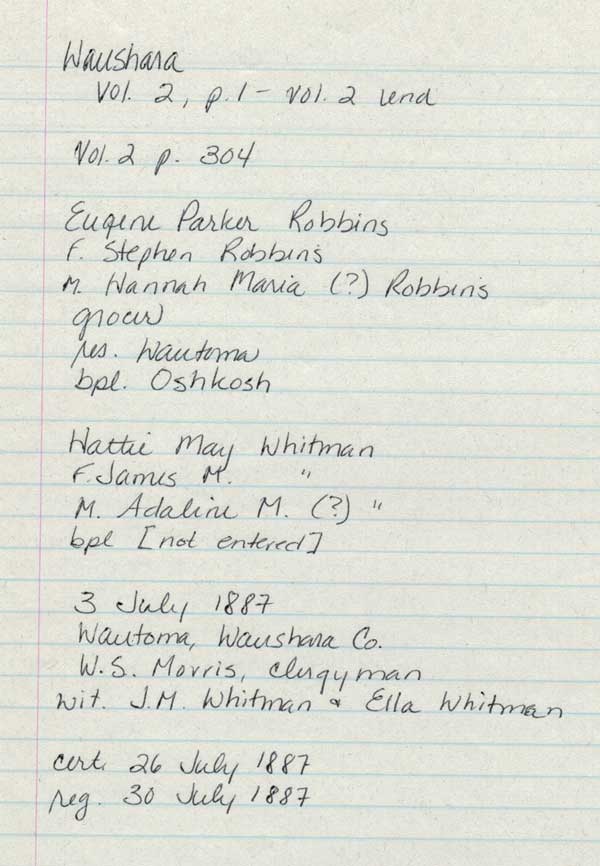 Waushara
Vol. 2, p. 1 - Vol. 2 end
Vol. 2 p. 304
Eugene Parker Robbins
F. Stephen Robbins
M. Hannah Maria (?) Robbins
grocer
res. Wautoma
bpl. Oshkosh
Hattie May Whitman
F. James M. "
M. Adaline M. (?) "
bpl [not entered]
3 July 1887
Wautoma, Waushara Co.
W.S. Morris, clergyman
wit. J.M. Whitman & Ella Whitman
cert. 26 July 1887
reg. 30 July 1887